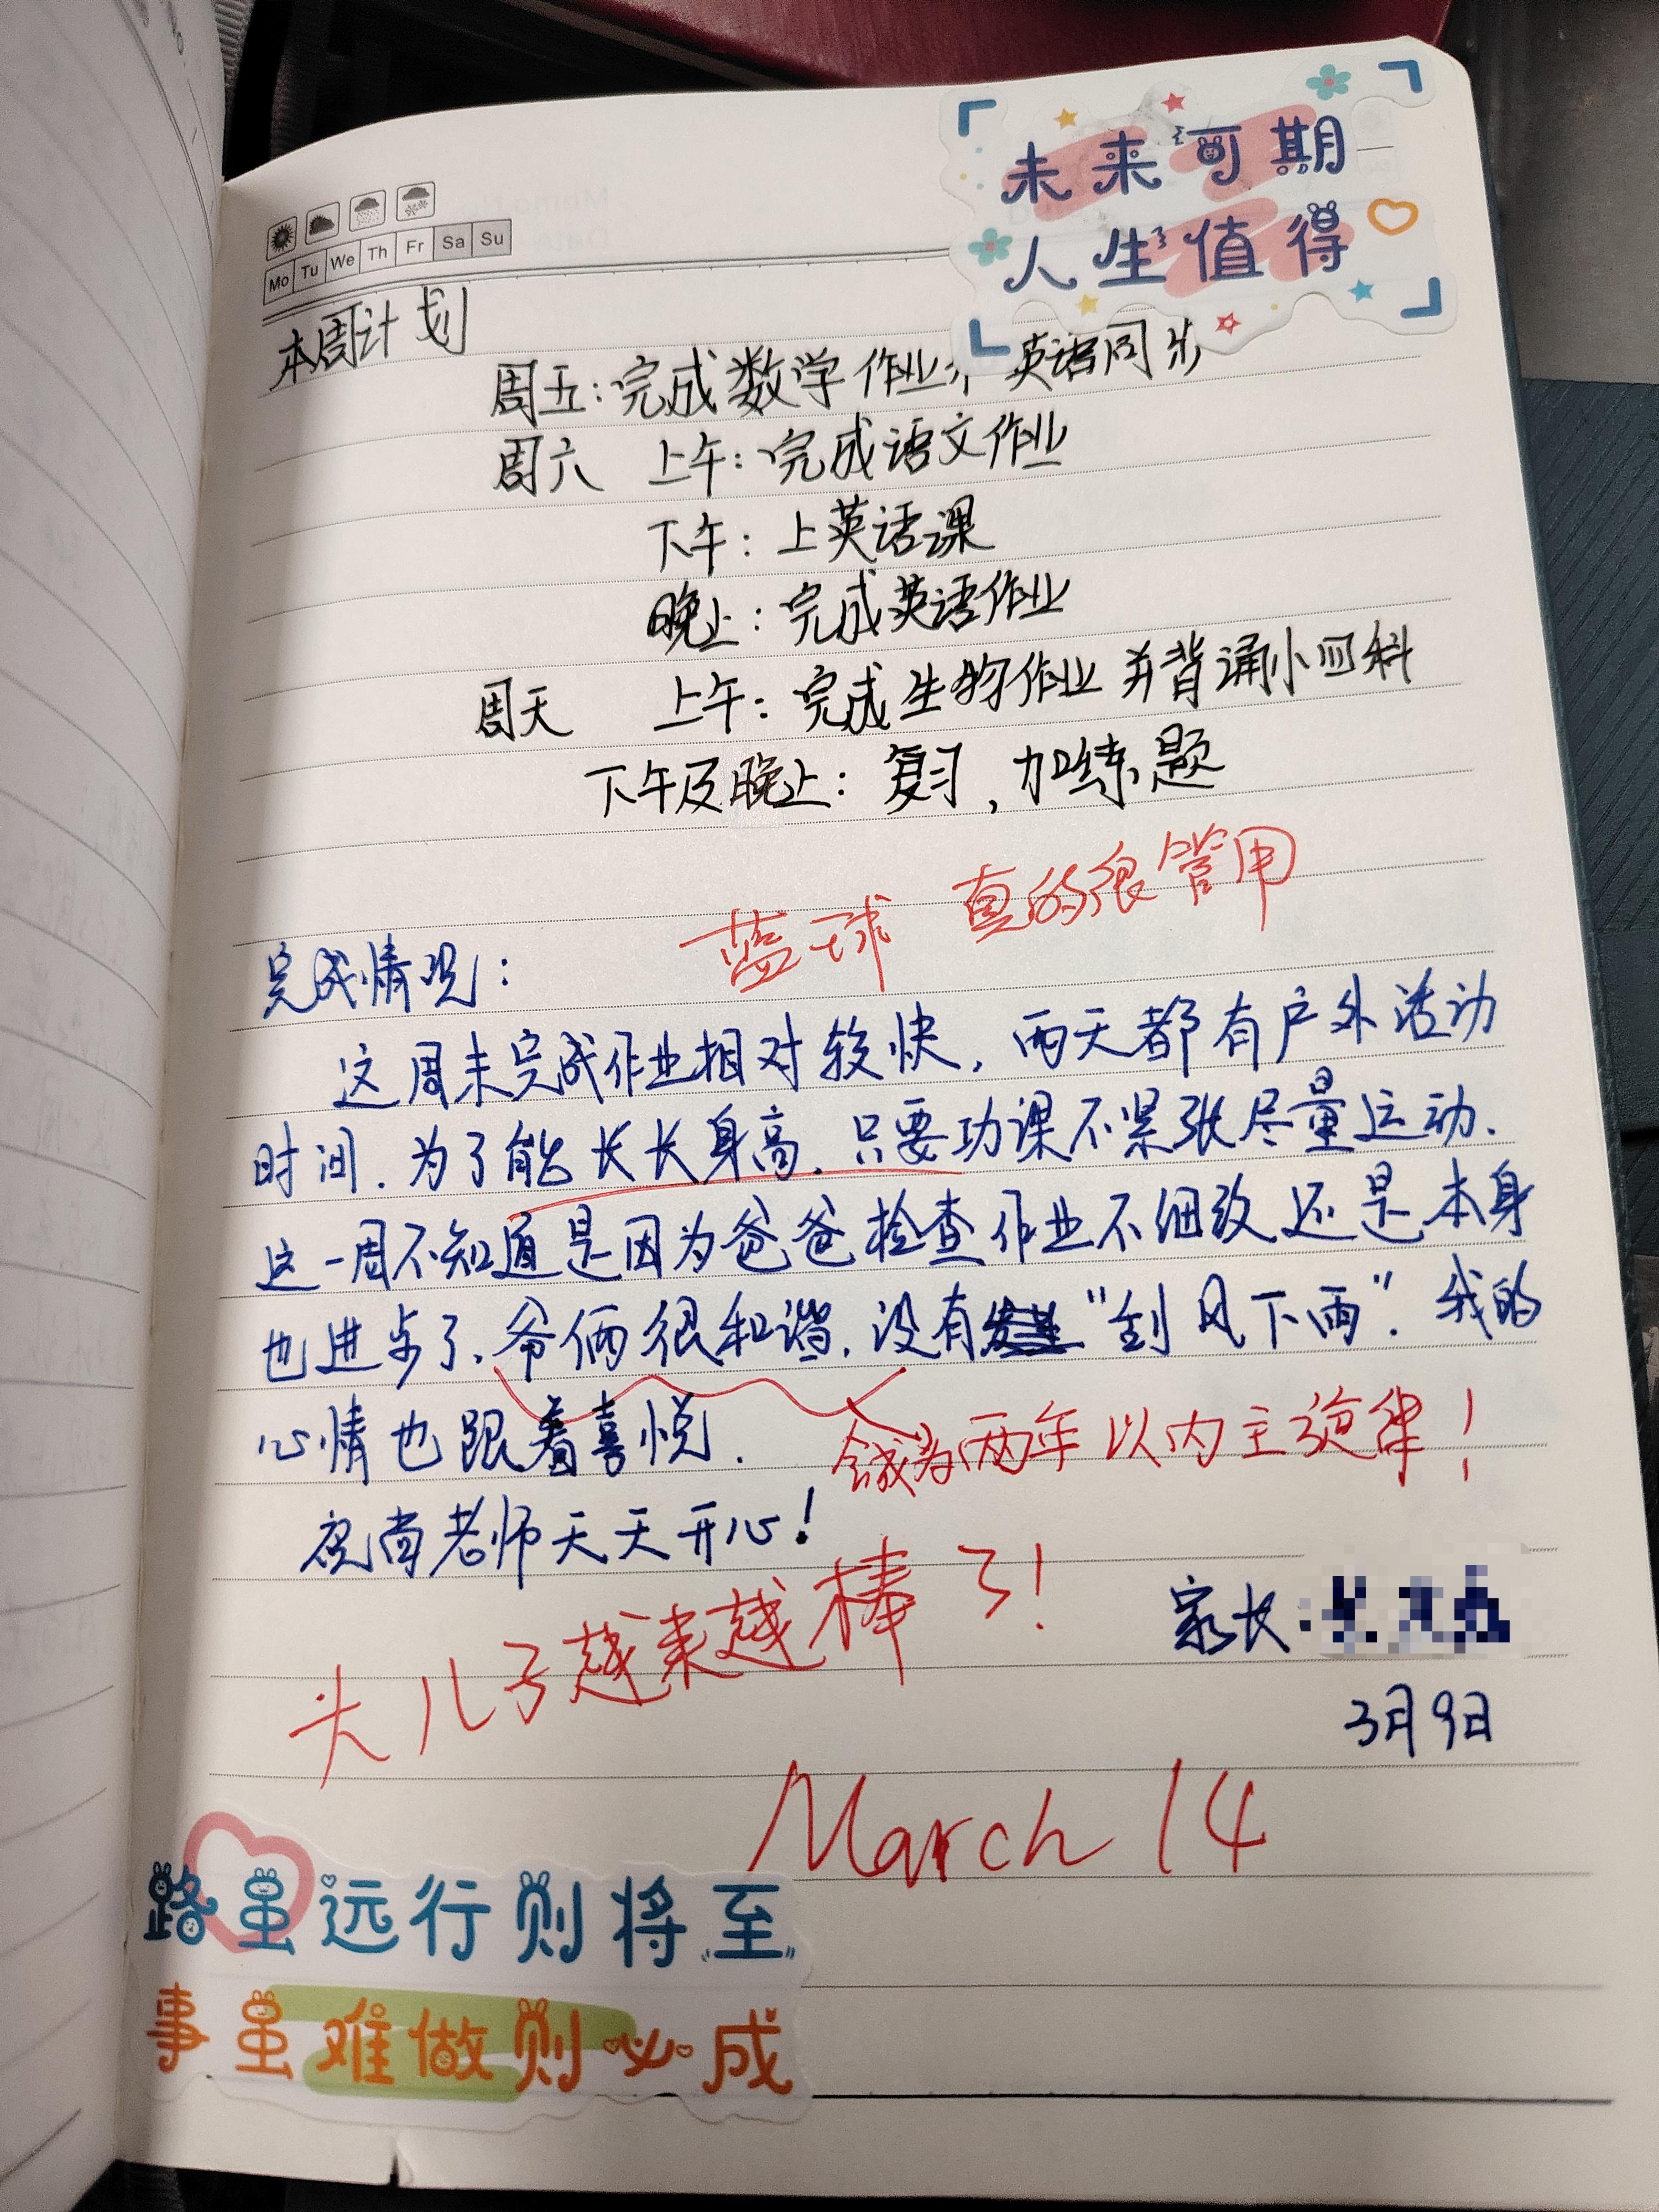 未来可期
人生值得
Mo Tu We Th Fr Sa Su
本周计划
周五:完成数学作业 英语同步
周六 上午:完成语文作业
下午:上英语课
晚上:完成英语作业
周天 上午:完成生物作业并背诵小四科
下午及晚上:复习,加练题
篮球 真的很管用
完成情况:
这周末完成作业相对较快,两天都有户外活动
时间.为了能长长身高.只要功课不紧张尽量运动.
这一周不知道是因为爸爸检查作业不细致还是本身
也进步了.爷俩很和谐.没有"刮风下雨".我的
心情也跟着喜悦.
成为两年以内主旋律!
祝尚老师天天开心!
大儿子越来越棒了!
家长:
3月9日
March 14
路虽远行则将至
事虽难做则必成